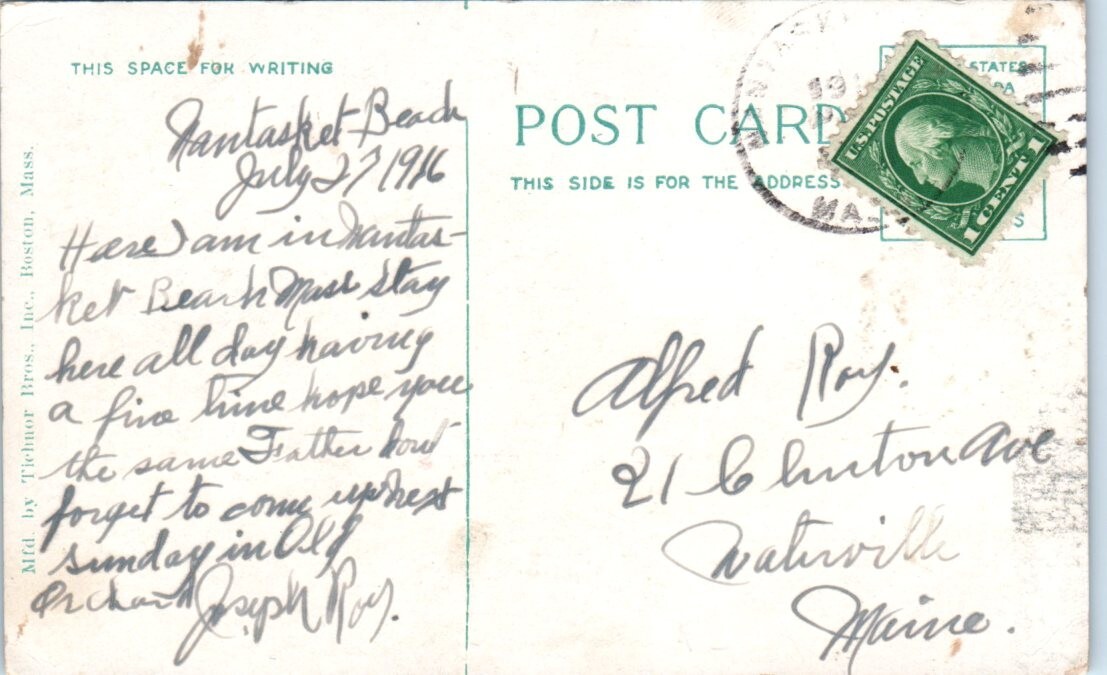 THIS SPACE FOR WRITING
Nantasket Beach
July 27 1916
Here I am in Nantas-
ket Beach Mass stay
here all day having
a fine time hope you
the same Father dont
forget to come up next
sunday in Old
Orchard Joseph Roy.
Mfd. by Tichnor Bros., Inc., Boston, Mass.
POST CARD
THIS SIDE IS FOR THE ADDRESS
STATES
MASS
U.S. POSTAGE
1 CENT 1
Alfred Roy.
21 Clinton Ave
Waterville
Maine.